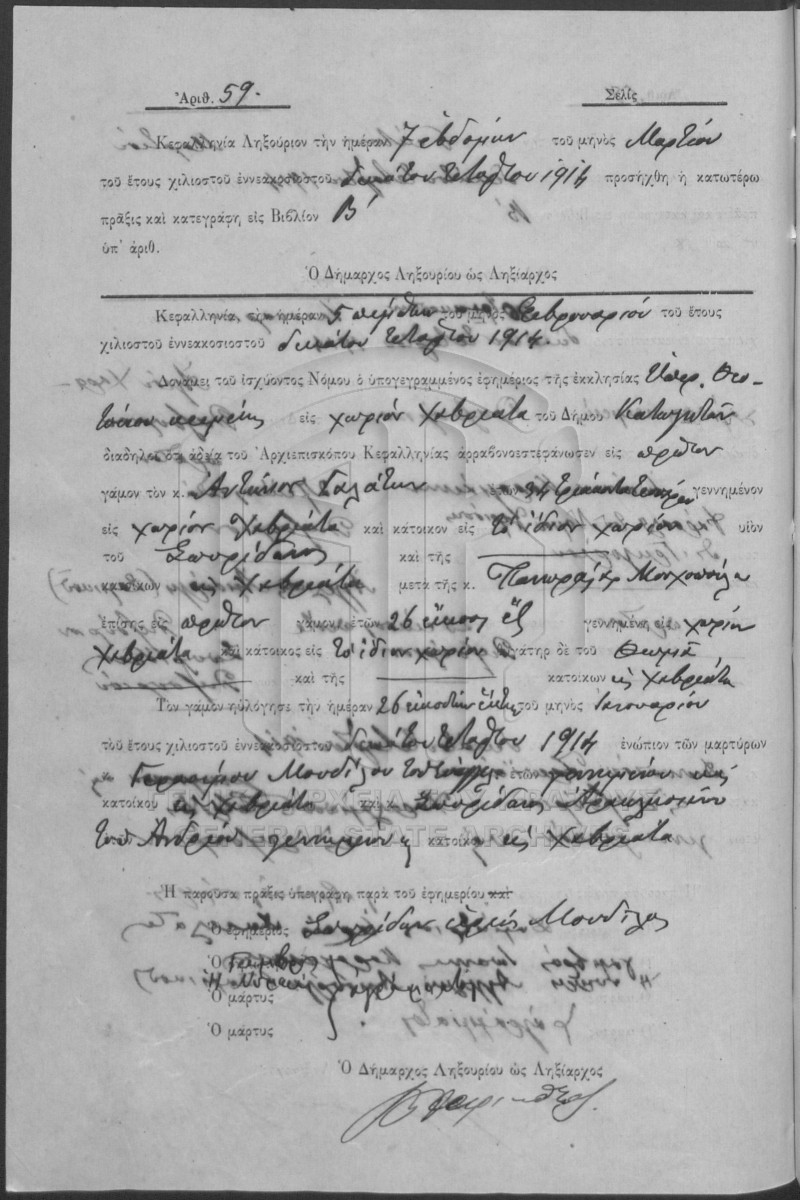 Ἀριθ. 59. Σελίς
Κεφαλληνία Ληξούριον τὴν ἡμέραν 7 ἑβδόμην τοῦ μηνὸς Μαρτίου
τοῦ ἔτους χιλιοστοῦ ἐννεακοσιοστοῦ δεκάτου τετάρτου 1914 προσήχθη ἡ κατωτέρω
πρᾶξις καὶ κατεγράφη εἰς Βιβλίον Β'
ὑπ' ἀριθ.
Ὁ Δήμαρχος Ληξουρίου ὡς Ληξίαρχος
Κεφαλληνία, τὴν ἡμέραν 5 πέμπτην τοῦ μηνὸς Φεβρουαρίου τοῦ ἔτους
χιλιοστοῦ ἐννεακοσιοστοῦ δεκάτου τετάρτου 1914.
Δυνάμει τοῦ ἰσχύοντος Νόμου ὁ ὑπογεγραμμένος ἐφημέριος τῆς ἐκκλησίας Ὑπερ. Θεο-
τόκου εἰς χωρίον Χαβριάτα τοῦ Δήμου
διαδηλοῖ ὅτι ἀδείᾳ τοῦ Ἀρχιεπισκόπου Κεφαλληνίας ἀρραβονοεστεφάνωσεν εἰς πρῶτον
γάμον τὸν κ. Ἀντώνιον Γαλάτην ἐτῶν 34 τριάκοντα τεσσάρων γεννημένον
εἰς χωρίον Χαβριάτα καὶ κάτοικον εἰς τὸ ἴδιον χωρίον υἱὸν
τοῦ Σπυρίδωνος καὶ τῆς
κατοίκων εἰς Χαβριάτα μετὰ τῆς κ.
ἐπίσης εἰς πρῶτον γάμον ἐτῶν 26 εἴκοσι ἓξ γεννημένη εἰς χωρίον
Χαβριάτα καὶ κάτοικος εἰς τὸ ἴδιον χωρίον θυγάτηρ δὲ τοῦ Θωμᾶ
καὶ τῆς κατοίκων εἰς Χαβριάτα
Τὸν γάμον ηὐλόγησε τὴν ἡμέραν 26 εἰκοστὴν ἕκτην τοῦ μηνὸς Ἰανουαρίου
τοῦ ἔτους χιλιοστοῦ ἐννεακοσιοστοῦ δεκάτου τετάρτου 1914 ἐνώπιον τῶν μαρτύρων
κ. Γερασίμου ἐτῶν γεννημένου καὶ
κατοίκου εἰς Χαβριάτα καὶ κ. Σπυρίδωνος
τοῦ Ἀνδρέου γεννημένου κατοίκου εἰς Χαβριάτα
ΓΕΝΙΚΑ ΑΡΧΕΙΑ ΤΟΥ ΚΡΑΤΟΥΣ
GENERAL STATE ARCHIVES
Ἡ παροῦσα πρᾶξις ὑπεγράφη παρὰ τοῦ ἐφημερίου καὶ
Ὁ ἐφημέριος Σπυρίδων ἱερεὺς
Ὁ
Ὁ μάρτυς
Ὁ μάρτυς
Ὁ Δήμαρχος Ληξουρίου ὡς Ληξίαρχος